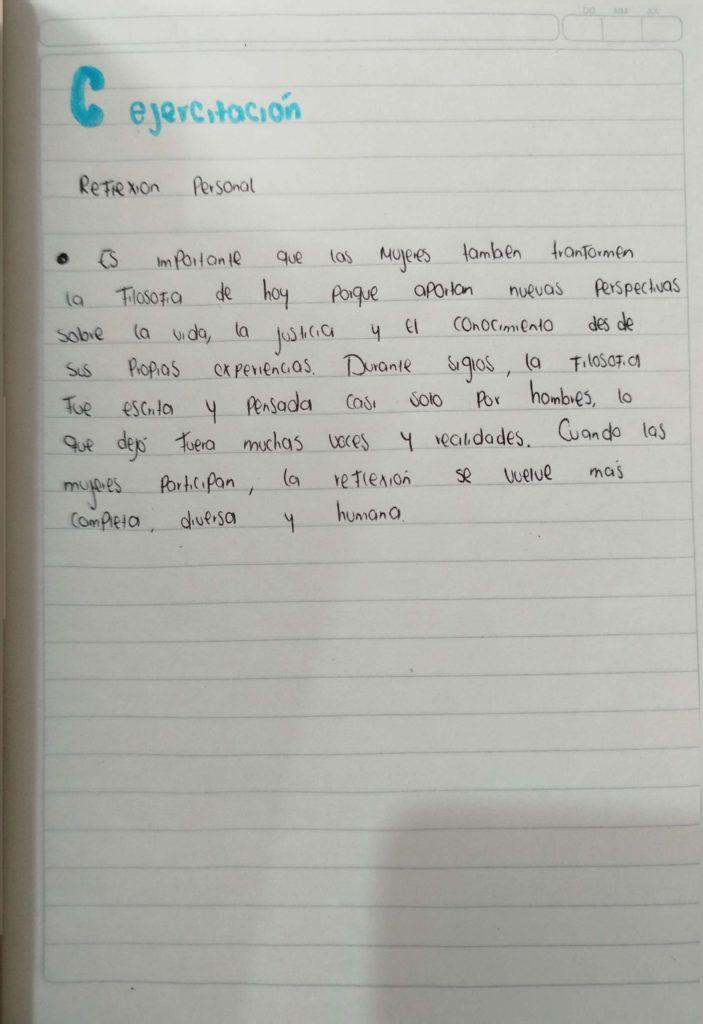 DD MM AA
C ejercitación
Reflexion Personal
• Es importante que las mujeres tambien tranformen
la Filosofia de hoy porque aportan nuevas perspectivas
sobre la vida, la justicia y el conocimiento des de
sus propias experiencias. Durante siglos, la Filosofia
Fue escrita y pensada casi solo por hombres, lo
que dejó fuera muchas voces y realidades. Cuando las
mujeres participan, la reflexión se vuelve más
completa, diversa y humana.